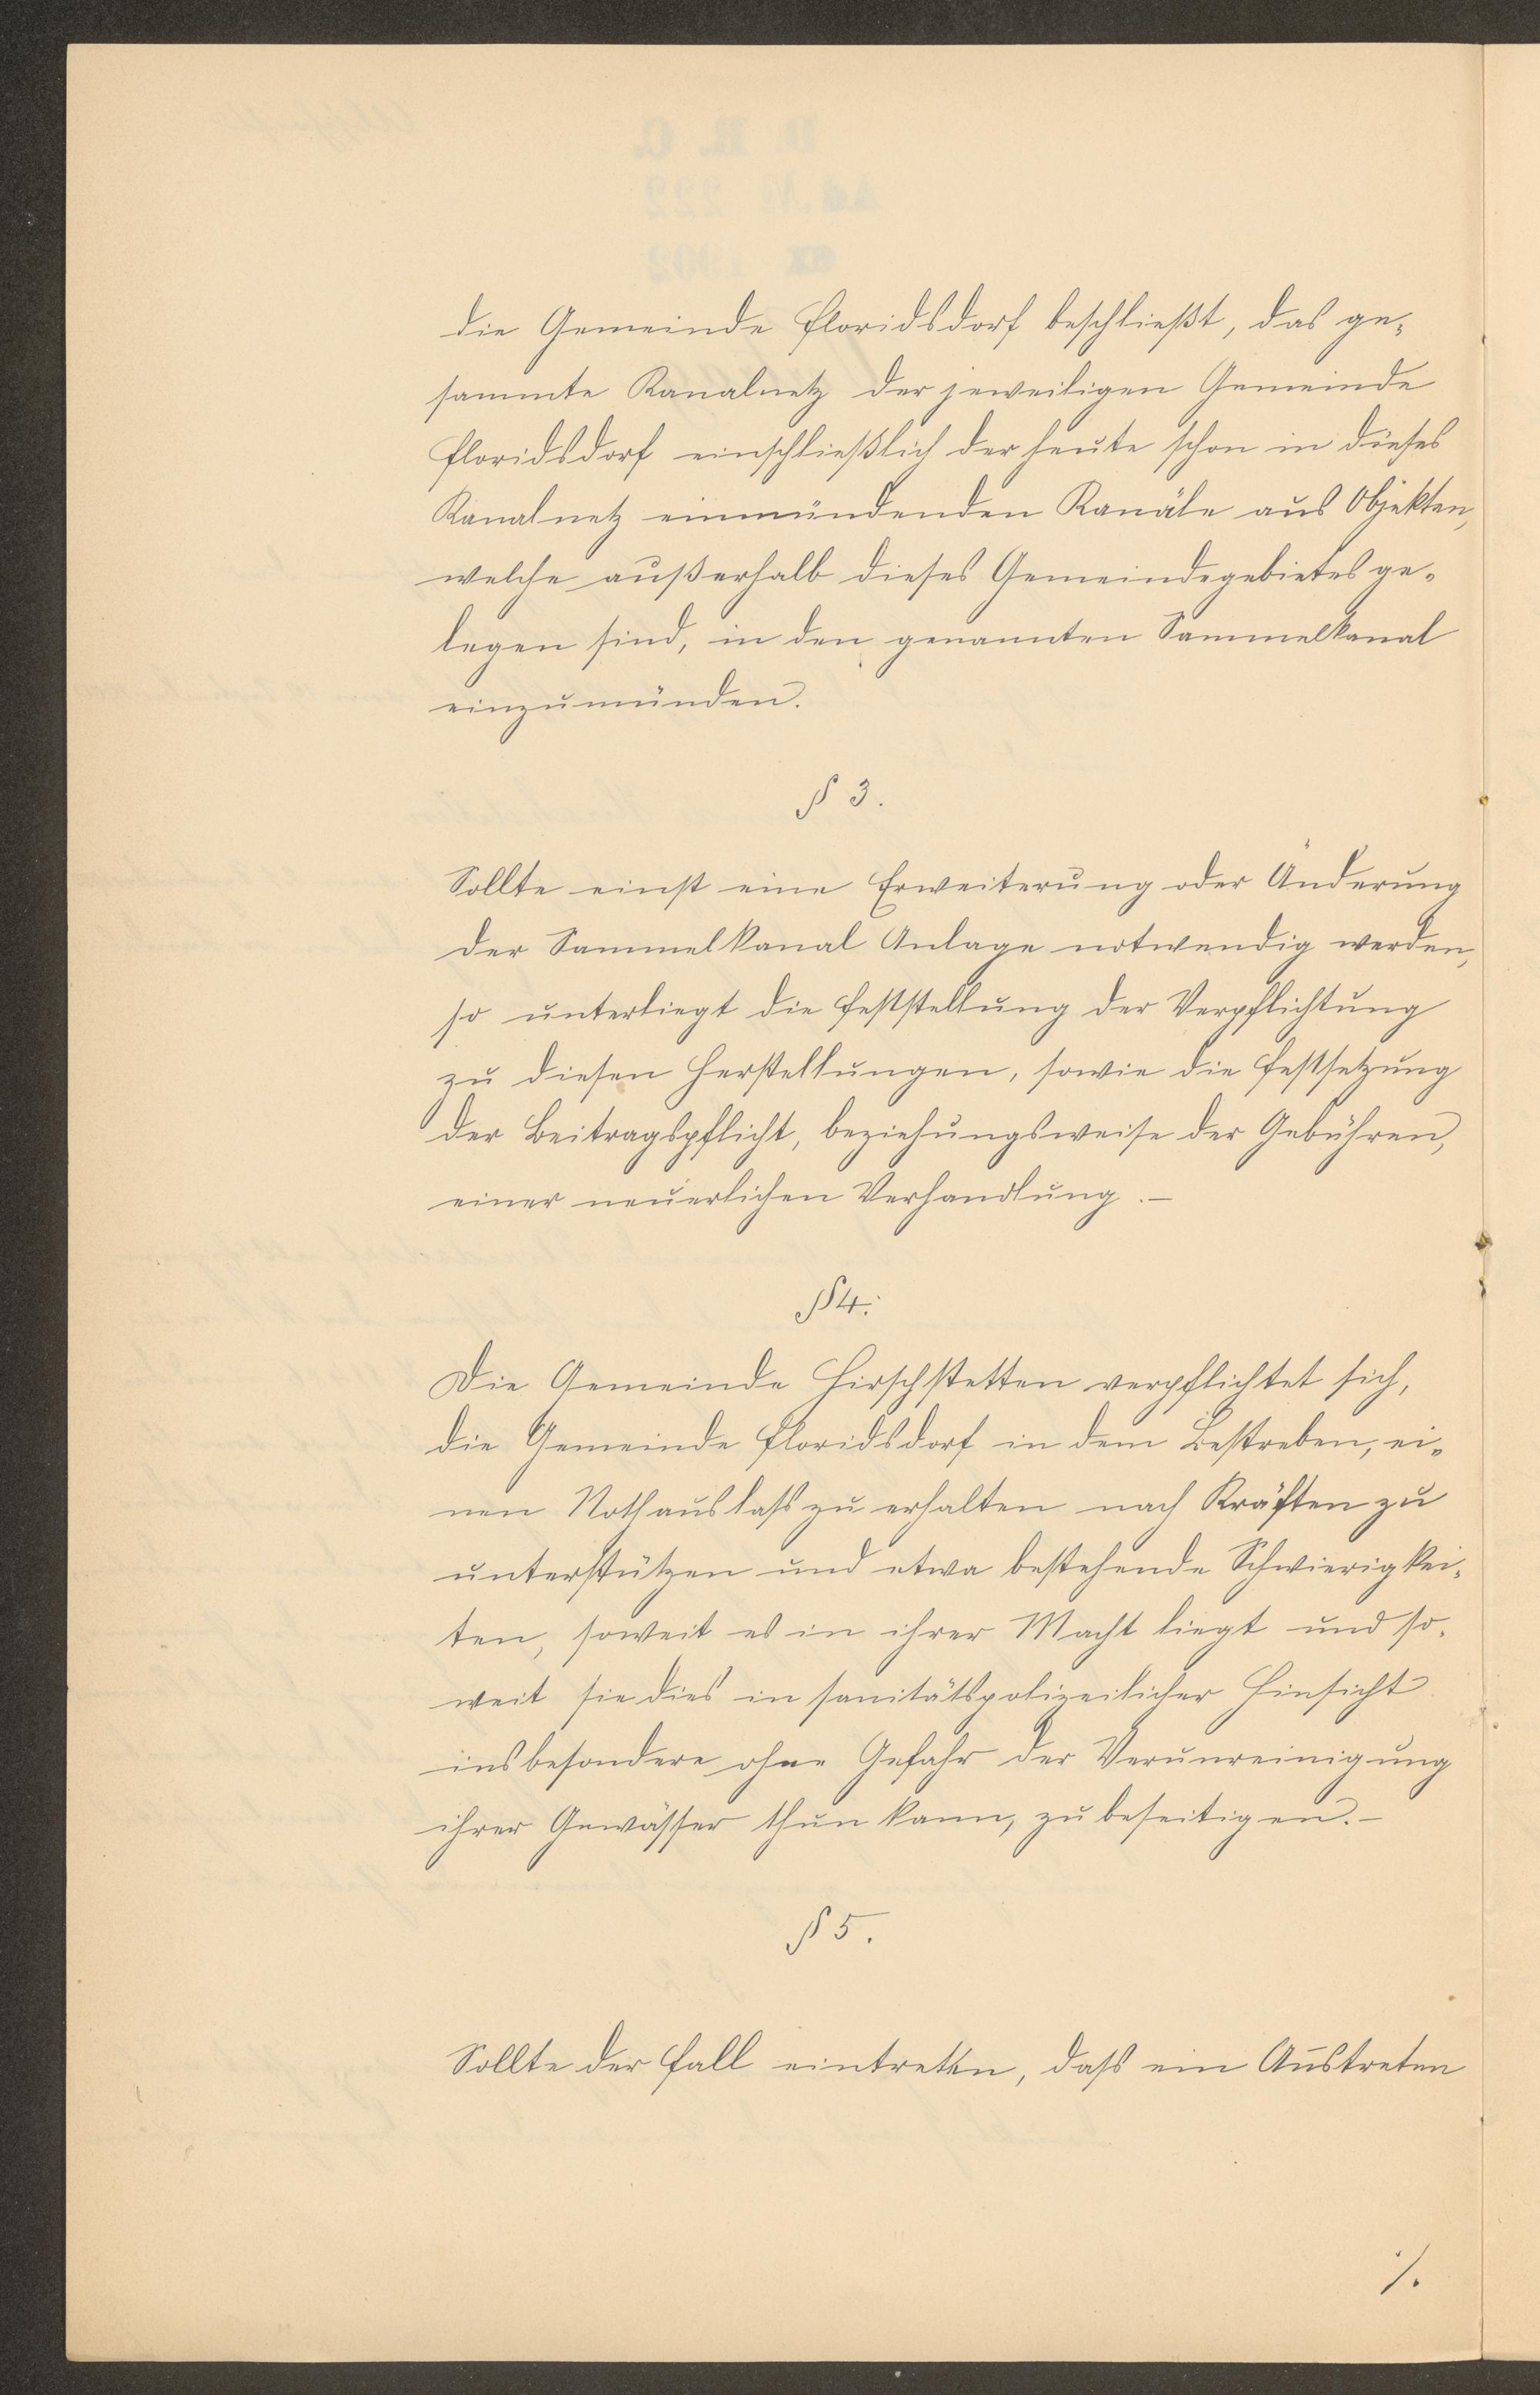 die Gemeinde Floridsdorf beschließt, das ge-
sammte Kanalnetz der jeweiligen Gemeinde
Floridsdorf einschließlich der heute schon in dieses
Kanalnetz einmündenden Kanäle aus Objekten,
welche außerhalb dieses Gemeindegebietes ge-
legen sind, in den genannten Sammelkanal
einzumünden.
§ 3.
Sollte einst eine Erweiterung oder Änderung
der Sammelkanal Anlage notwendig werden,
so unterliegt die Feststellung der Verpflichtung
zu diesen Herstellungen, sowie die Festsetzung
der Beitragspflicht, beziehungsweise der Gebühren,
einer neuerlichen Verhandlung.–
§ 4.
Die Gemeinde Hirschstetten verpflichtet sich,
die Gemeinde Floridsdorf in dem Bestreben, ei-
nen Nothauslass zu erhalten nach Kräften zu
unterstützen und etwa bestehende Schwierigkei-
ten, soweit es in ihrer Macht liegt und so-
weit sie dies in sanitätspolizeilicher Hinsicht
insbesondere ohne Gefahr der Verunreinigung
ihrer Gewässer thun kann, zu beseitigen.–
§ 5.
Sollte der Fall eintreten, dass ein Austreten
./.